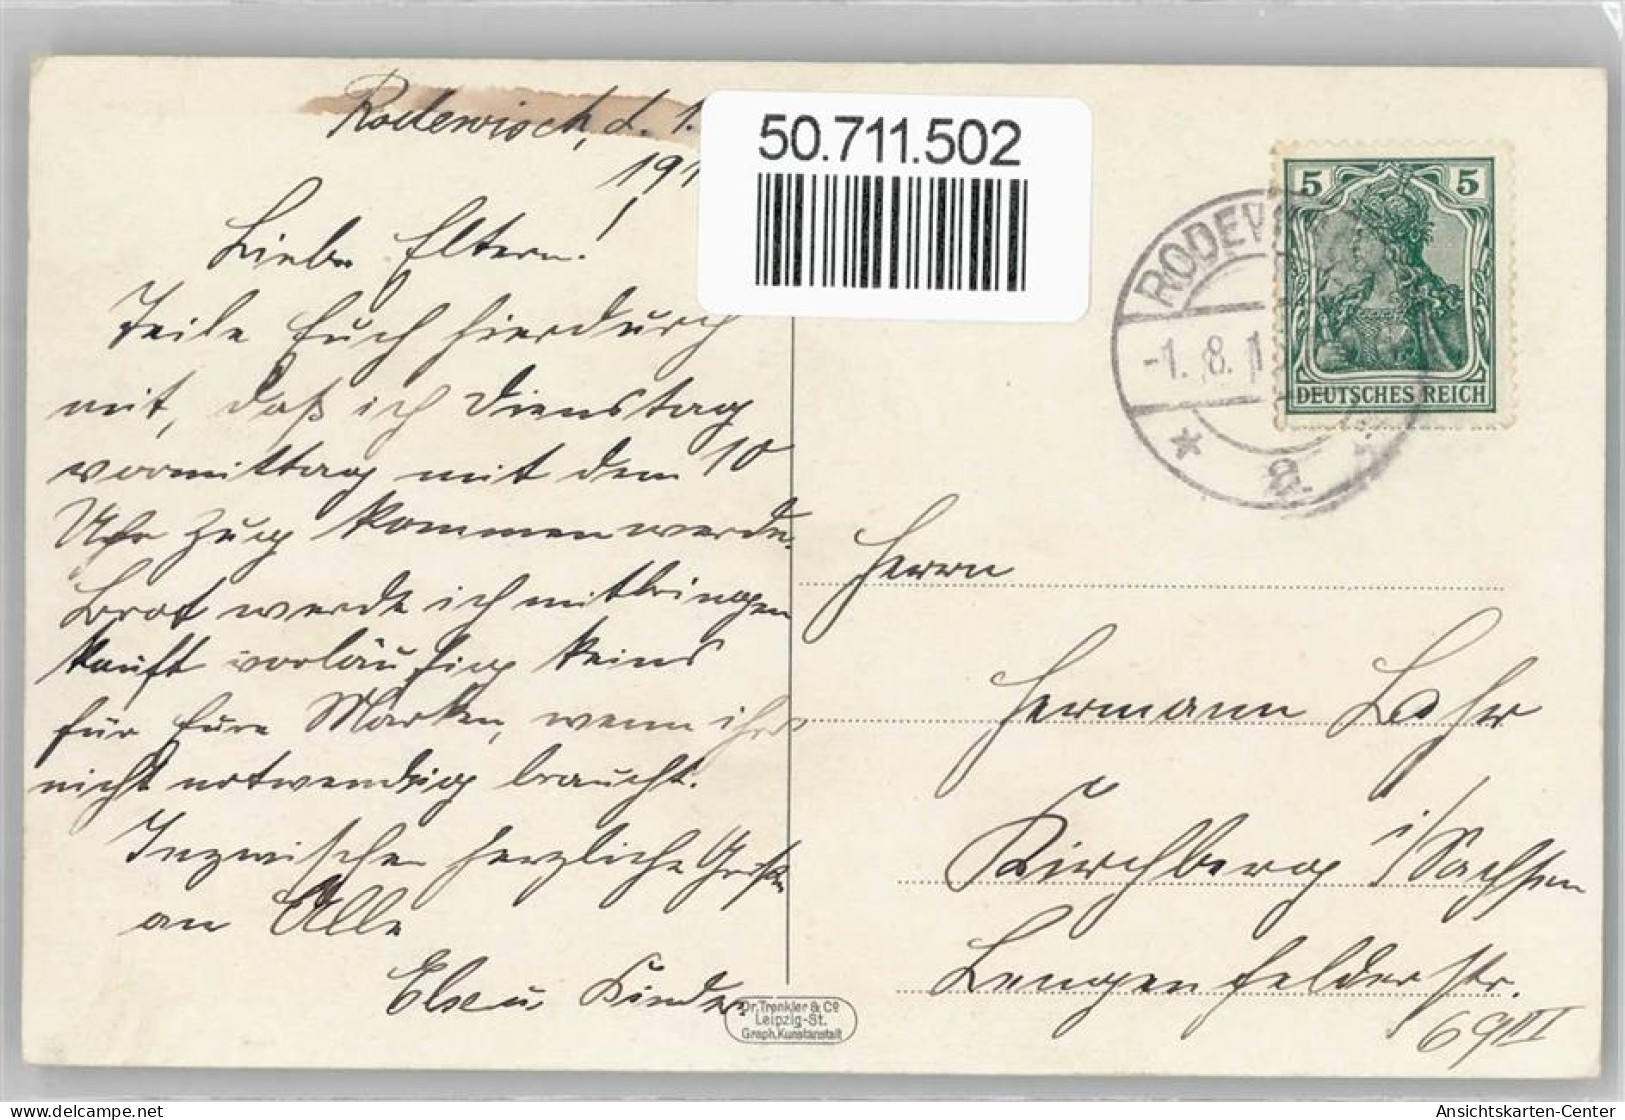 Rodewisch, d. 1.
191
Liebe Eltern!
Teile Euch hierdurch
mit, daß ich Dienstag
vormittag mit dem 10
Uhr Zug kommen werde.
Brot werde ich mitbringen
kauft vorläufig keins
für Eure Marken, wenn ihrs
nicht notwendig braucht.
Inzwischen herzliche Grüße
an Alle
Else u. Kinder
50.711.502
5 5
DEUTSCHES REICH
RODEW
-1. 8. 1
* a.
Herrn
Hermann
Kirchberg i/Sachsen
Lengenfelder Str.
69 III
Dr. Trenkler & Co
Leipzig-St.
Graph. Kunstanstalt
Ansichtskarten-Center